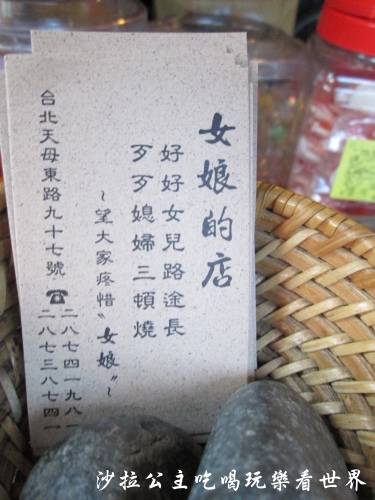 女娘的店
好好女兒路途長
歹歹媳婦三頓燒
~望大家疼惜〝女娘〞~
台北天母東路九十七號☎二八七四一九八一
二八七三八七四一
沙拉公主吃喝玩樂看世界